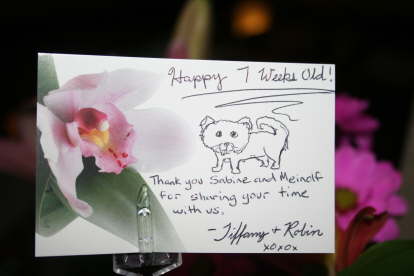 Happy 7 Weeks Old!
Thank you Sabine and Meinolf
for sharing your time
with us.
- Tiffany + Robin
xoxox